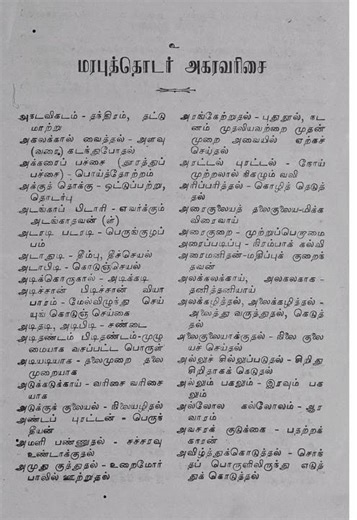 உ
மரபுத்தொடர் அகரவரிசை
அகடவிகடம் - தந்திரம், தட்டு
மாற்று
அகலக்கால் வைத்தல் - அளவு
(வரை) கடந்துபோதல்
அக்கரைப் பச்சை (தூரத்துப்
பச்சை) - பொய்த்தோற்றம்
அக்குத் தொக்கு - ஒட்டுப்பற்று,
தொடர்பு
அடங்காப் பிடாரி - எவர்க்கும்
அடங்காதவன் (ள்)
அடரடி படரடி - பெருங்குழப்
பம்
அடாதுடி - தீம்பு, தீச்செயல்
அடாபிடி - கொடுஞ்செயல்
அடிக்கொருகால் - அடிக்கடி
அடிச்சான் பிடிச்சான் வியா
பாரம் - மேல்விழுந்து செய்
யுங் கொடுஞ் செய்கை
அடிதடி, அடிபிடி - சண்டை
அடிதண்டம் பிடிதண்டம்-முழு
மையாக வசப்பட்ட பொருள்
அடியடியாக - தலைமுறை தலை
முறையாக
அடுக்கடுக்காய் - வரிசை வரிசை
யாக
அடுக்குக் குலையல் - நிலையழிதல்
அண்டப் புரட்டன் - பெருக்
தீயன்
அமளி பண்ணுதல் - சச்சரவு
உண்டாக்குதல்
அமுது குத்துதல் - உறைமோர்
பாலில் ஊற்றுதல்
அரங்கேற்றுதல் - புதுநூல், நட
னம் முதலியவற்றை முதன்
முறை அவையில் ஏற்கச்
செய்தல்
அரட்டல் புரட்டல் - நோய்
முற்றலால் நிகழும் வலி
அரிப்பரித்தல் - கொழித் தெடுத்
தல்
அரைகுலையத் தலைகுலைய-மிக்க
விரைவாய்
அரைகுறை - முற்றுப்பெறாமை
அரைப்படிப்பு - நிரம்பாக் கல்வி
அரைமனிதன்-மதிப்புக் குறைந்
தவன்
அலக்கலக்காய், அலகலகாக -
தனித்தனியாய்
அலக்கழித்தல், அலைக்கழித்தல் -
அலைத்து வருத்துதல், கெடுத்
தல்
அலைகுலையாக்குதல் - நிலை குலை
யச் செய்தல்
அல்லுச் சில்லுப்படுதல் - சிறிது
சிறிதாகக் கெடுதல்
அல்லும் பகலும் - இரவும் பக
லும்
அல்லோல கல்லோலம் - ஆர
வாரம்
அவசரக் குடுக்கை - பதற்றக்
காரன்
அவிழ்த்துக்கொடுத்தல் - சொந்
தப் பொருளிலிருந்து எடுத்
துக் கொடுத்தல்